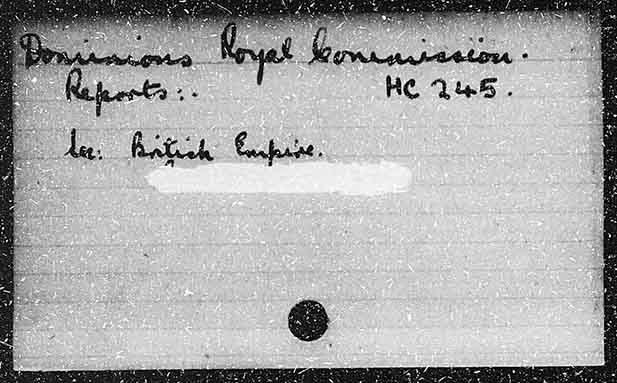 Dominions Royal Commission.
Reports:. HC 245.
See: British Empire.